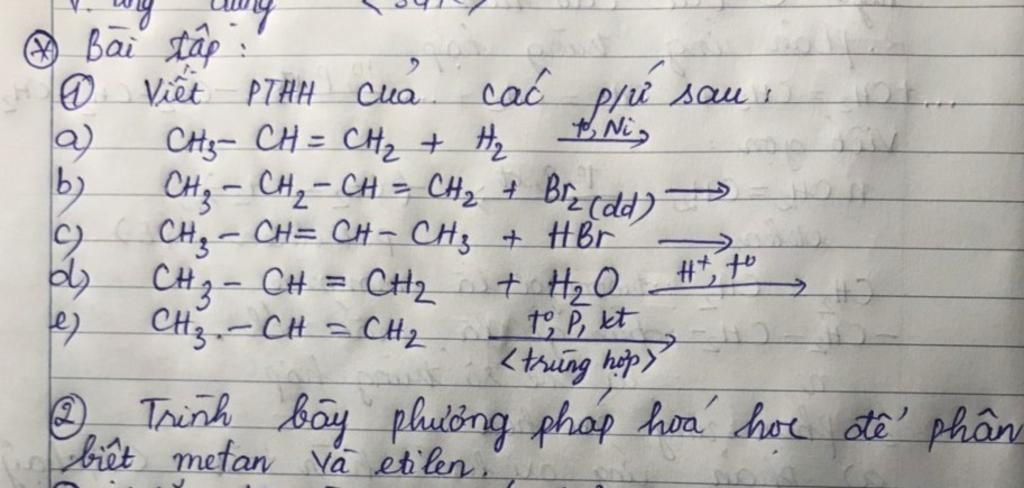 * Bài tập:
① Viết PTHH của các p/ứ sau:
a) CH₃ – CH = CH₂ + H₂ t°, Ni →
b) CH₃ – CH₂ – CH = CH₂ + Br₂(dd) →
c) CH₃ – CH = CH – CH₃ + HBr →
d) CH₃ – CH = CH₂ + H₂O H⁺, t° →
e) CH₃ – CH = CH₂ t°, P, xt →
<trùng hợp>
② Trình bày phương pháp hoá học để phân
biệt metan và etilen.